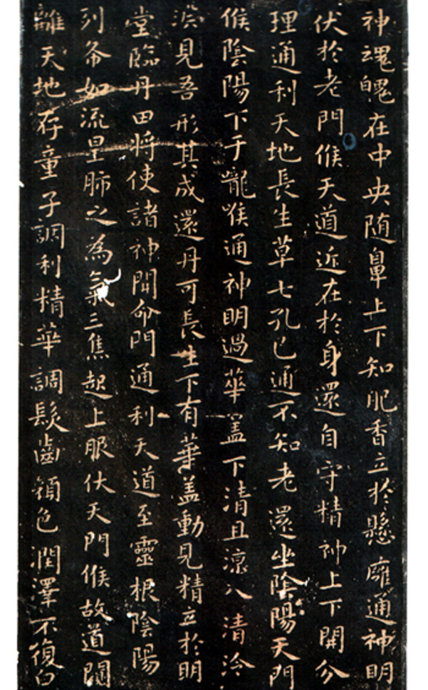 神魂魄在中央随鼻上下知肥香立於懸廱通神明
伏於老門候天道近在於身還自守精神上下開分
理通利天地長生草七孔已通不知老還坐陰陽天門
候陰陽下于嚨喉通神明過華蓋下清且涼入清泠
淵見吾形其成還丹可長生下有華盖動見精立於明
堂臨丹田將使諸神開命門通利天道至靈根陰陽
列布如流星肺之為氣三焦起上服伏天門候故道闚
離天地存童子調利精華調髮齒顏色潤澤不復白